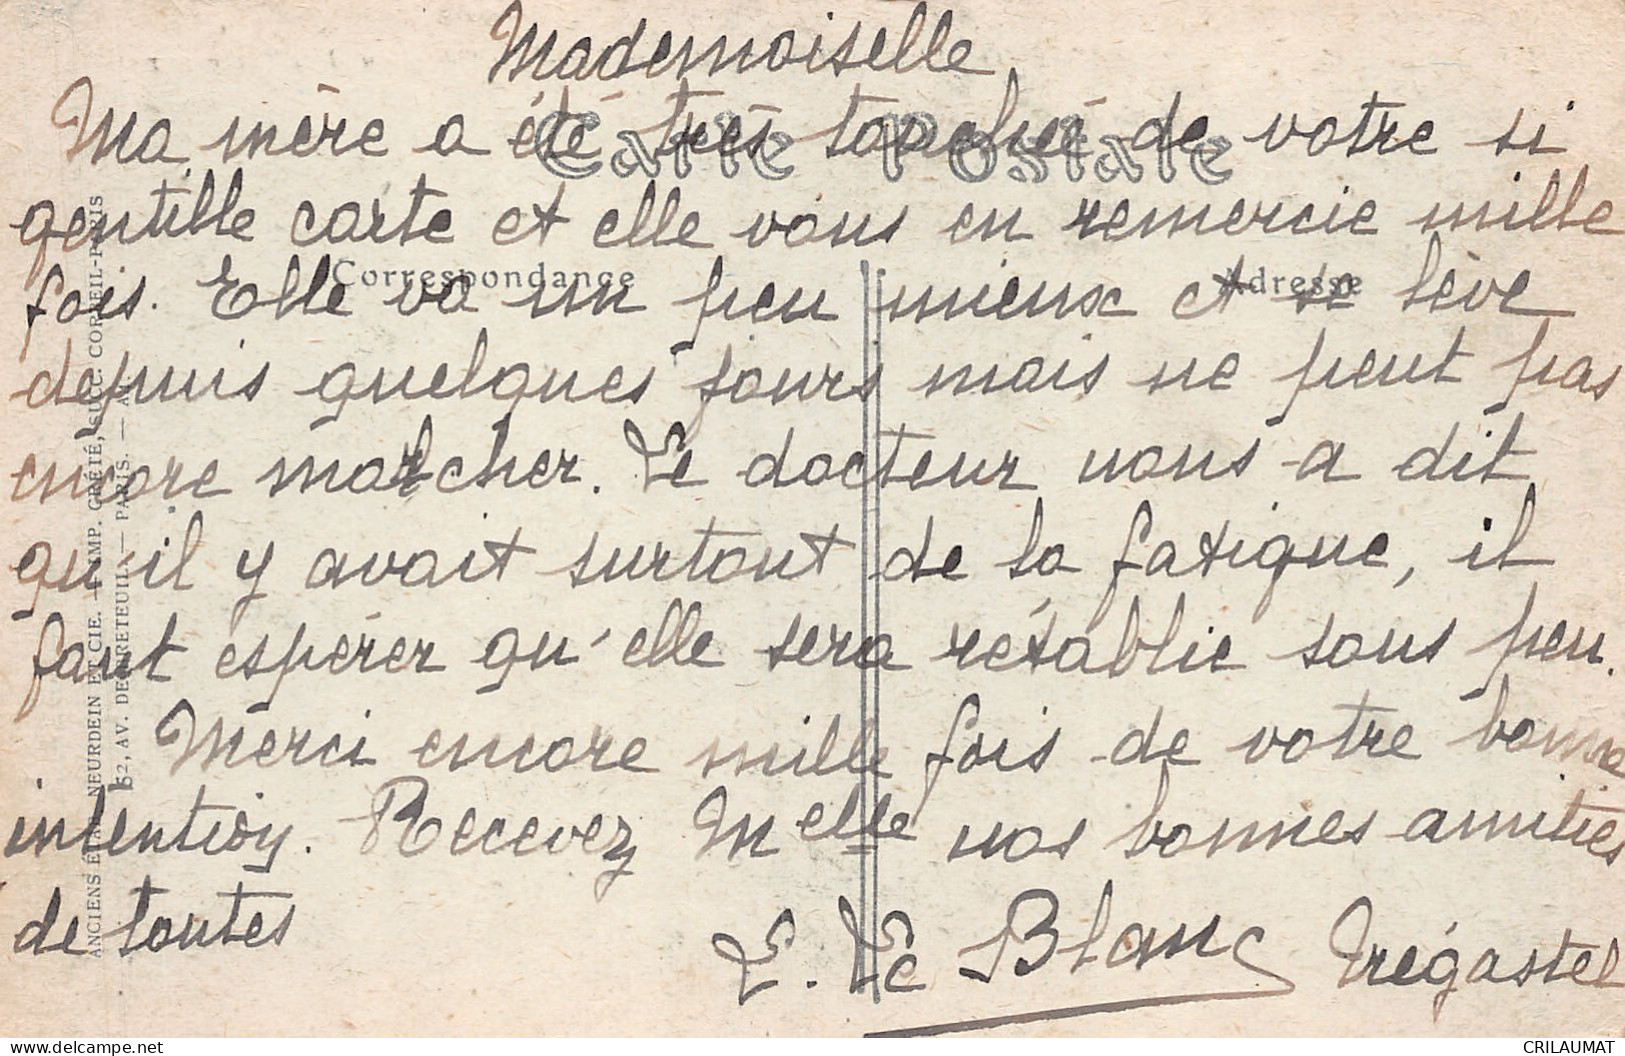 Mademoiselle
Ma mère a été très touchée de votre si
gentille carte et elle vous en remercie mille
fois. Elle va un peu mieux et se lève
depuis quelques jours mais ne peut pas
encore marcher. Le docteur nous a dit
qu'il y avait surtout de la fatigue, il
faut espérer qu'elle sera rétablie sous peu.
Merci encore mille fois de votre bonne
intention. Recevez Melle nos bonnes amitiés
de toutes
E. Le Blanc Trégastel
Carte Postale
Correspondance
Adresse
ANCIENS ÉTAB. NEURDEIN ET CIE. — IMP. CRÉTÉ, SUCC. CORBEIL-PARIS
52, AV. DE BRETEUIL — PARIS. —
delcampe.net
CRILAUMAT